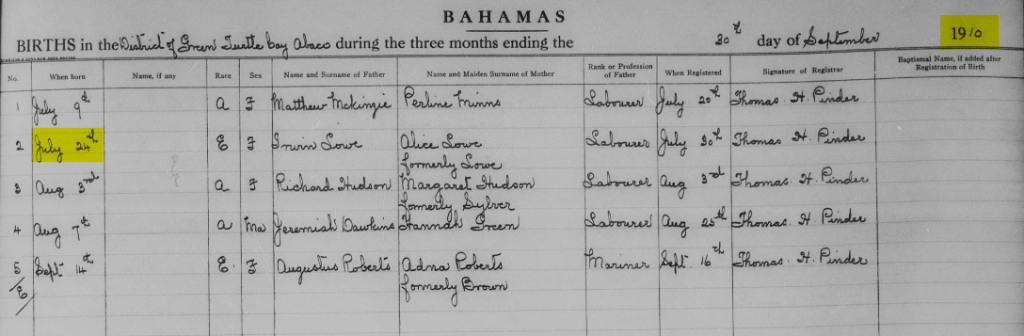 BAHAMAS
BIRTHS in the District of Green Turtle Cay Abaco during the three months ending the 30th day of September 1910
No. When born Name, if any Race Sex Name and Surname of Father Name and Maiden Surname of Mother Rank or Profession of Father When Registered Signature of Registrar Baptismal Name, if added after Registration of Birth
1 July 9th A F Matthew McKinzie Perline Minns Labourer July 20th Thomas H. Pinder
2 July 24th E F Irwin Lowe Alice Lowe Labourer July 30th Thomas H. Pinder
formerly Lowe
3 Aug 3rd A F Richard Hudson Margaret Hudson Labourer Aug 3rd Thomas H. Pinder
formerly Sylver
4 Aug 7th A Ma Jeremiah Dawkins Hannah Green Labourer Aug 25th Thomas H. Pinder
5 Sept 14th E. F Augustus Roberts Adna Roberts Mariner Sept. 16th Thomas H. Pinder
/E/ formerly Brown